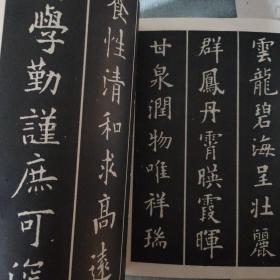 雲龍碧海呈壮麗
群鳳丹霄暎霞暉
甘泉潤物唯祥瑞
食性清和求高遠
學勤謹庶可